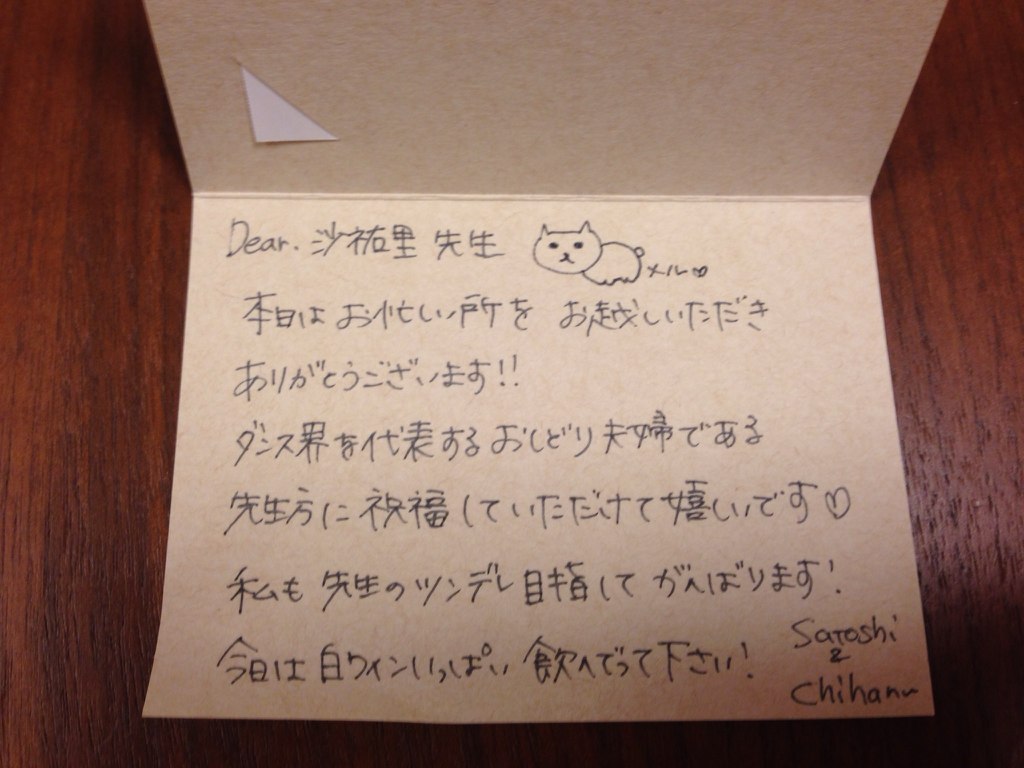 Dear. 沙祐里 先生
メル♡
本日は お忙しい所を お越しいただき
ありがとうございます!!
ダンス界を代表する おしどり夫婦である
先生方に 祝福していただけて嬉しいです♡
私も 先生のツンデレ目指して がんばります!
今日は 白ワインいっぱい 飲んでって下さい!
Satoshi
&
Chiharu